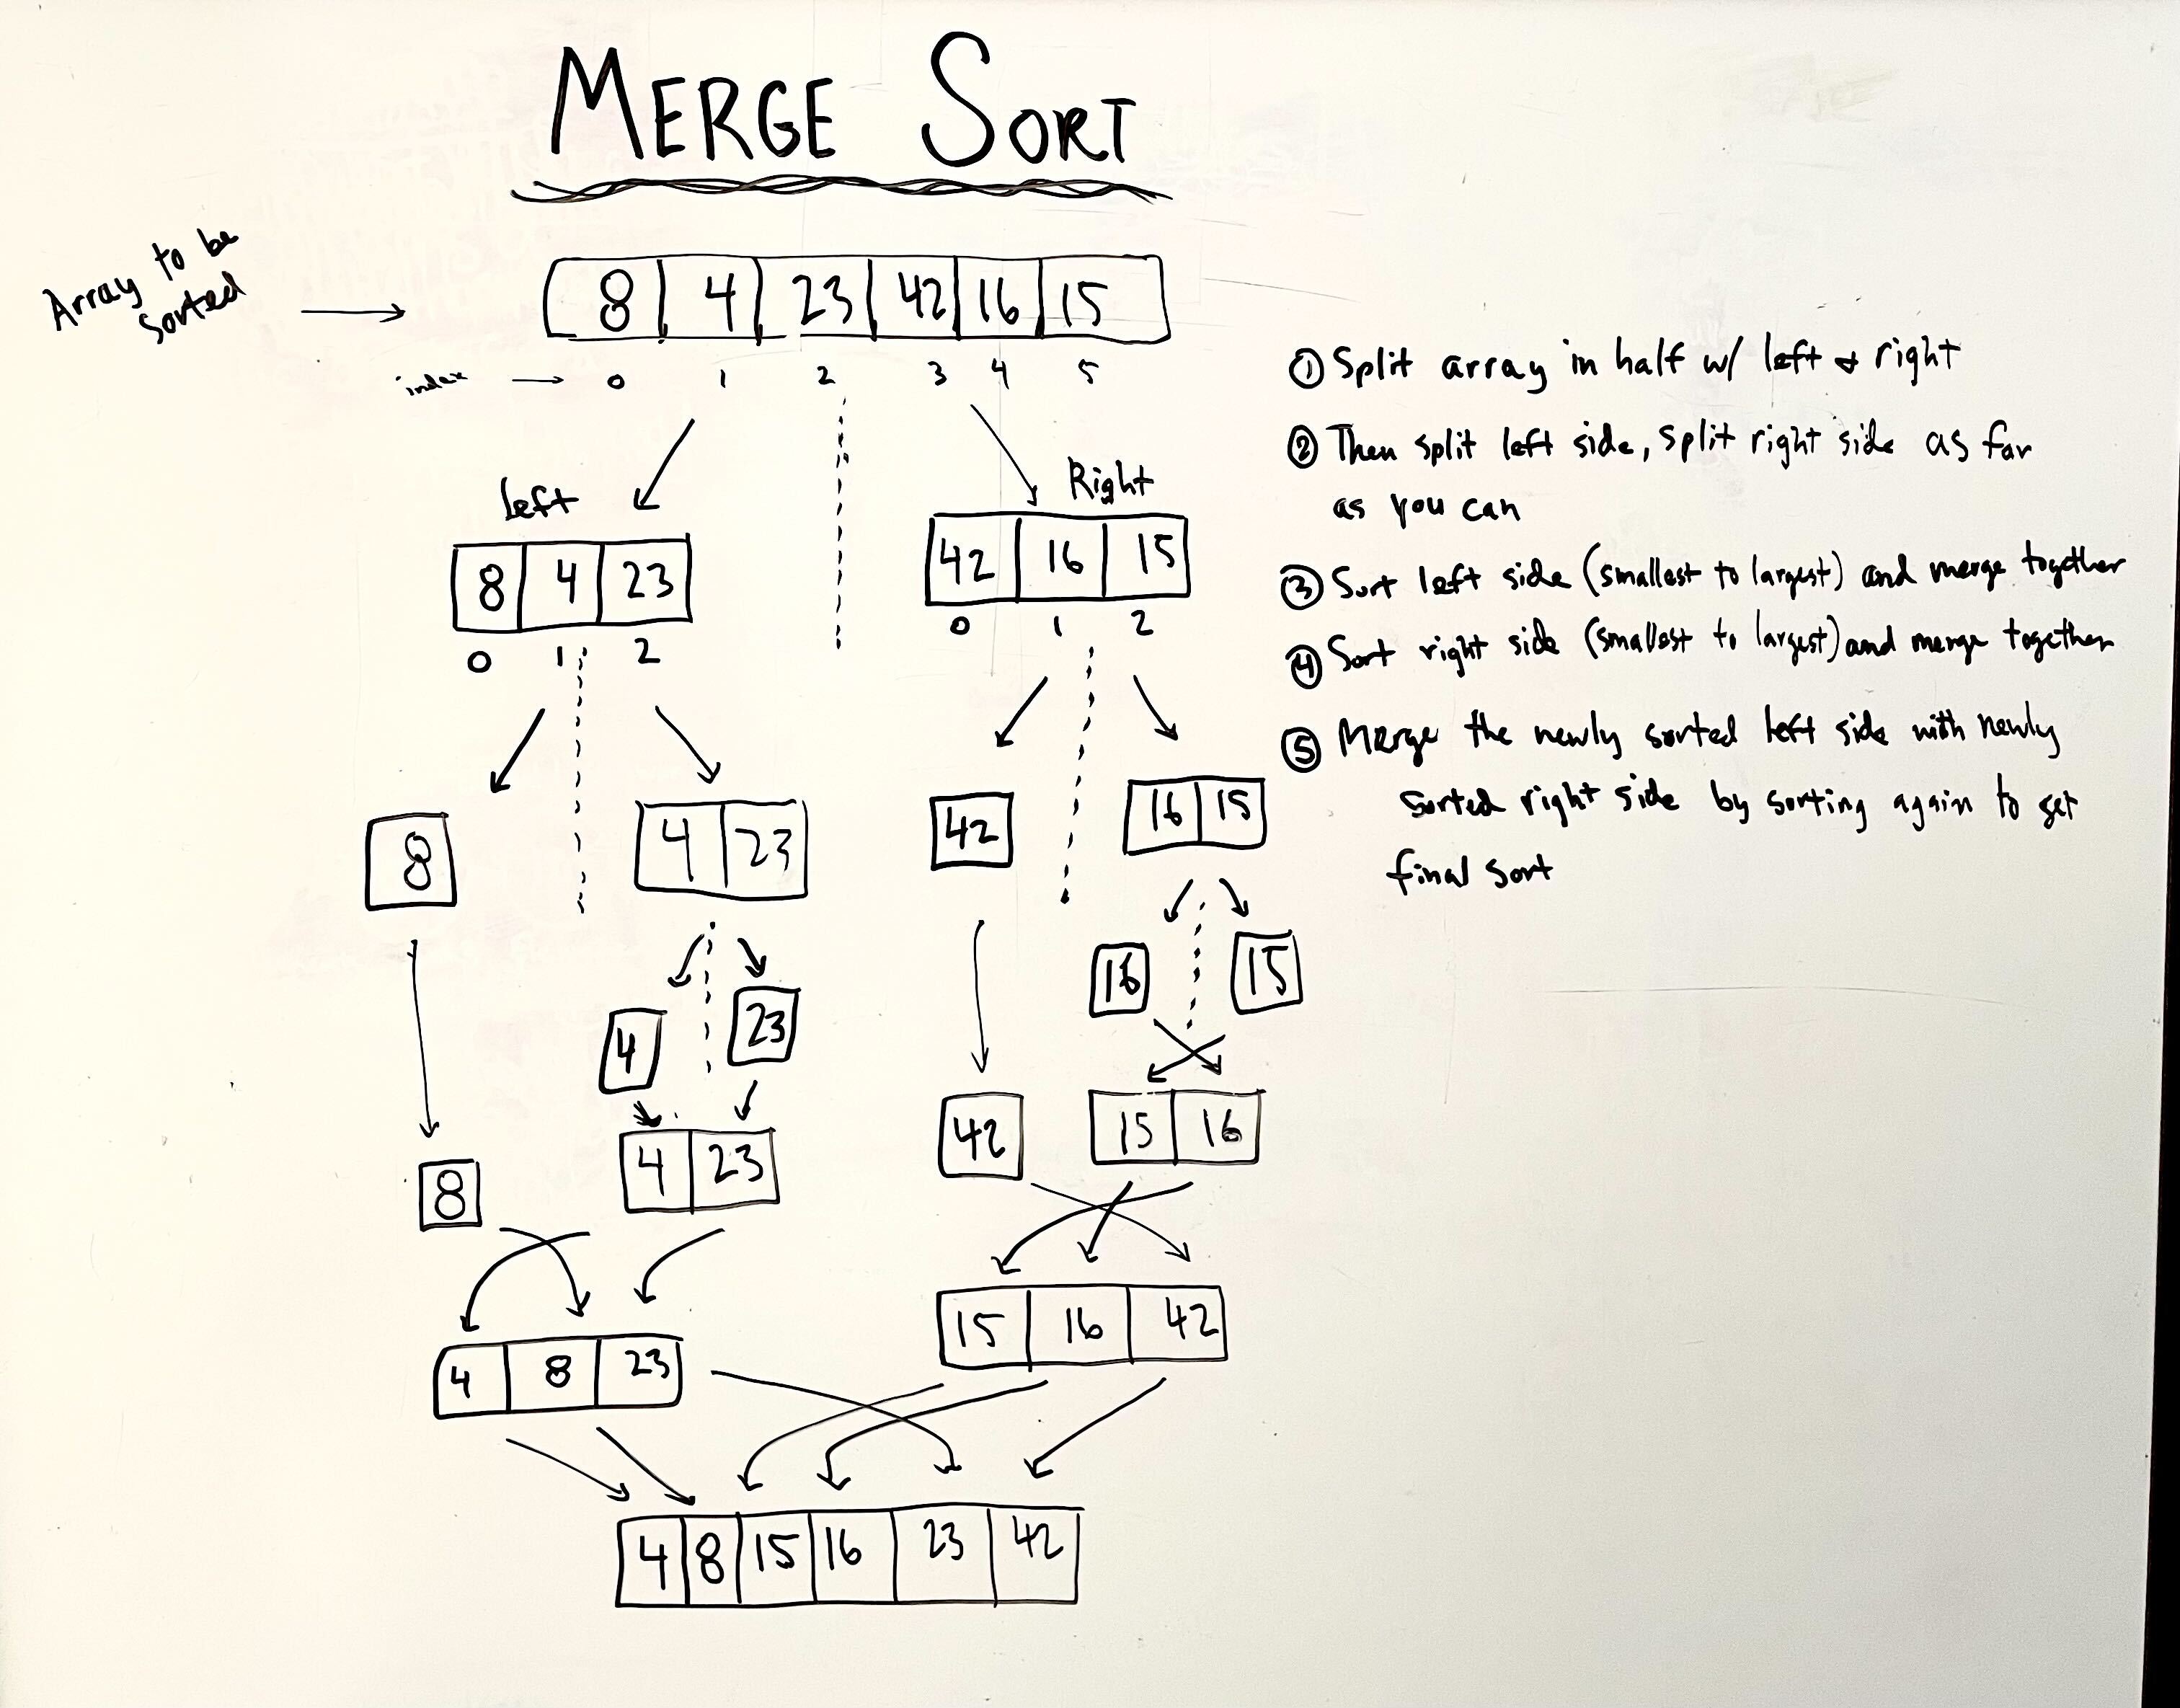 MERGE SORT
Array to be
sorted
8 4 23 42 16 15
index 0 1 2 3 4 5
left
8 4 23
0 1 2
Right
42 16 15
0 1 2
8
4 23
42
16 15
4
23
16
15
8
4 23
42
15 16
4 8 23
15 16 42
4 8 15 16 23 42
① Split array in half w/ left & right
② Then split left side, split right side as far
as you can
③ Sort left side (smallest to largest) and merge together
④ Sort right side (smallest to largest) and merge together
⑤ Merge the newly sorted left side with newly
sorted right side by sorting again to get
final sort